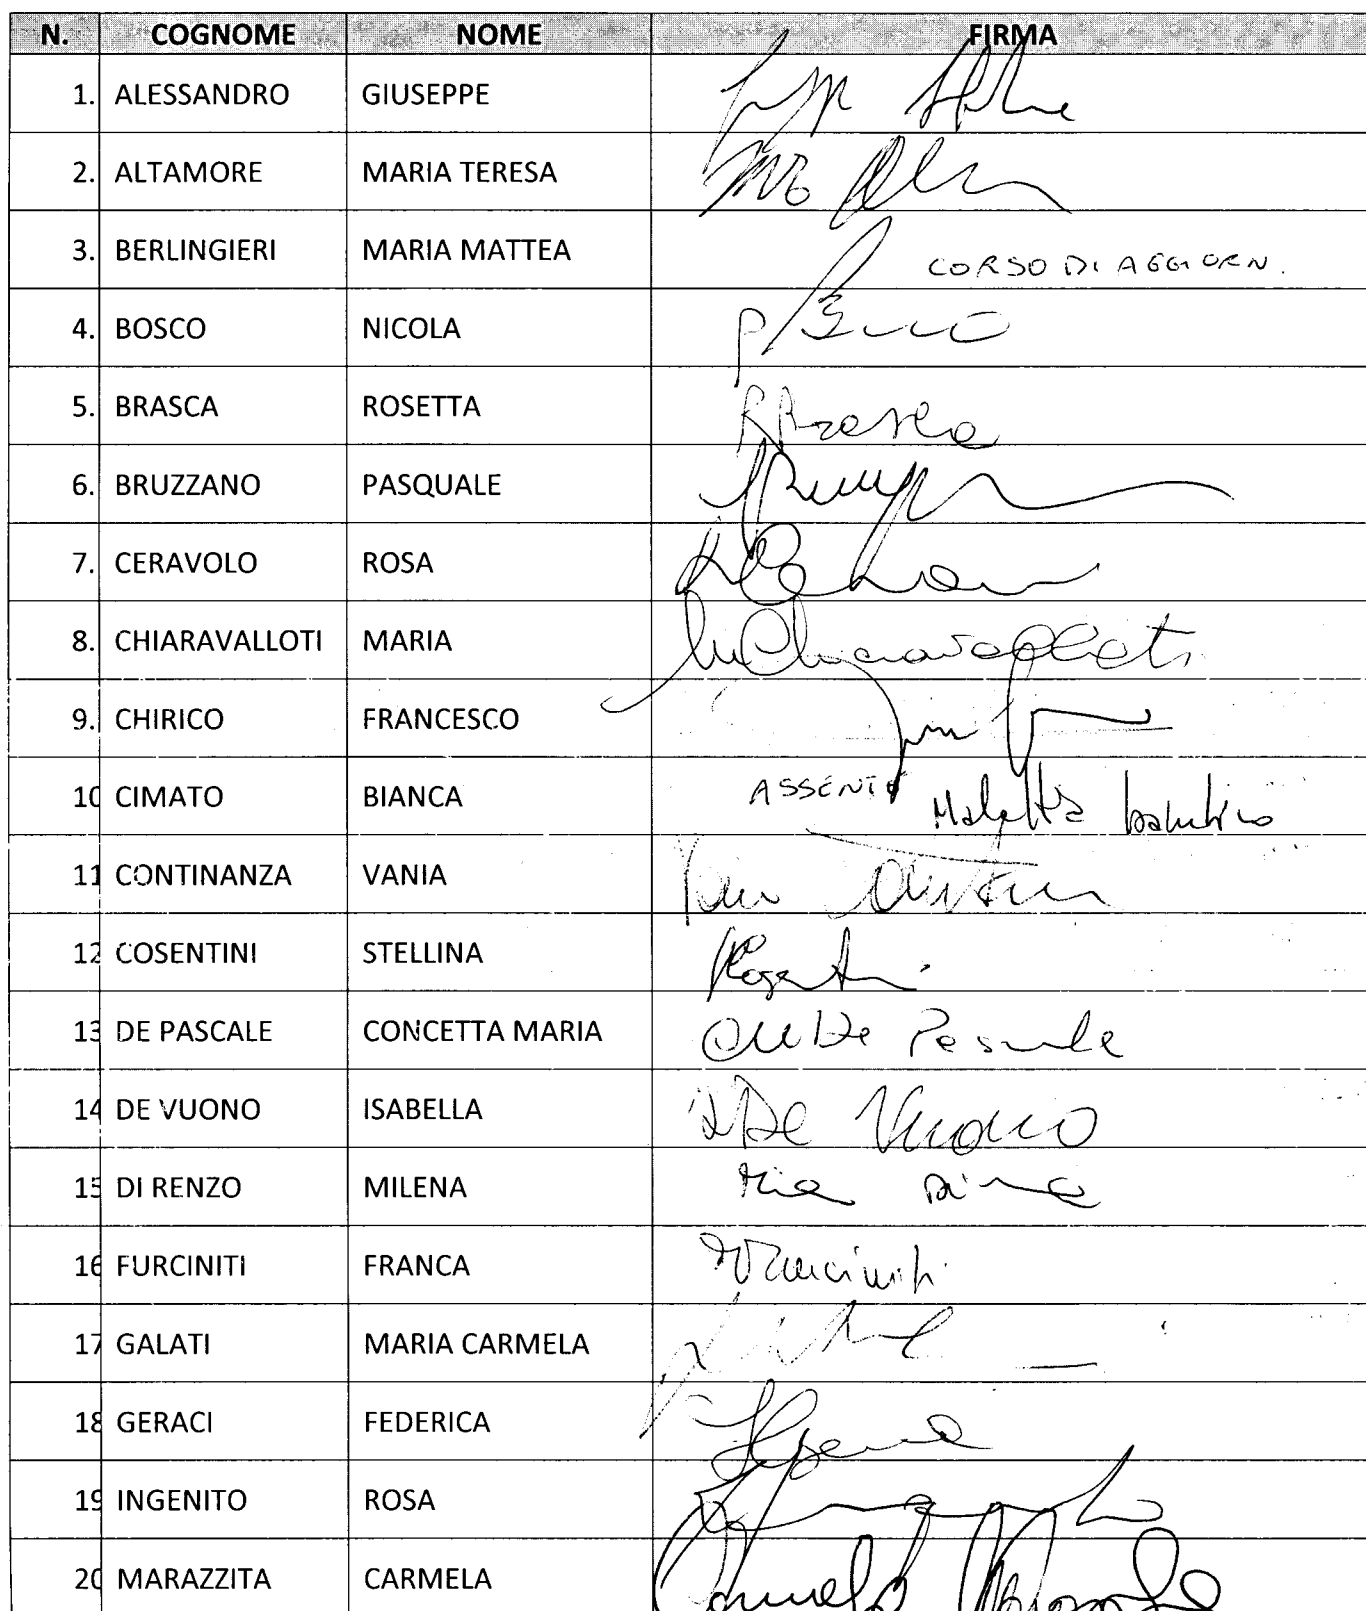 N. COGNOME NOME FIRMA
1. ALESSANDRO GIUSEPPE
2. ALTAMORE MARIA TERESA
3. BERLINGIERI MARIA MATTEA CORSO DI AGGIORN.
4. BOSCO NICOLA
5. BRASCA ROSETTA R Brasca
6. BRUZZANO PASQUALE
7. CERAVOLO ROSA
8. CHIARAVALLOTI MARIA Chiaravalloti
9. CHIRICO FRANCESCO
10 CIMATO BIANCA ASSENTE
11 CONTINANZA VANIA
12 COSENTINI STELLINA
13 DE PASCALE CONCETTA MARIA De Pascale
14 DE VUONO ISABELLA De Vuono
15 DI RENZO MILENA
16 FURCINITI FRANCA Furciniti
17 GALATI MARIA CARMELA
18 GERACI FEDERICA
19 INGENITO ROSA
20 MARAZZITA CARMELA